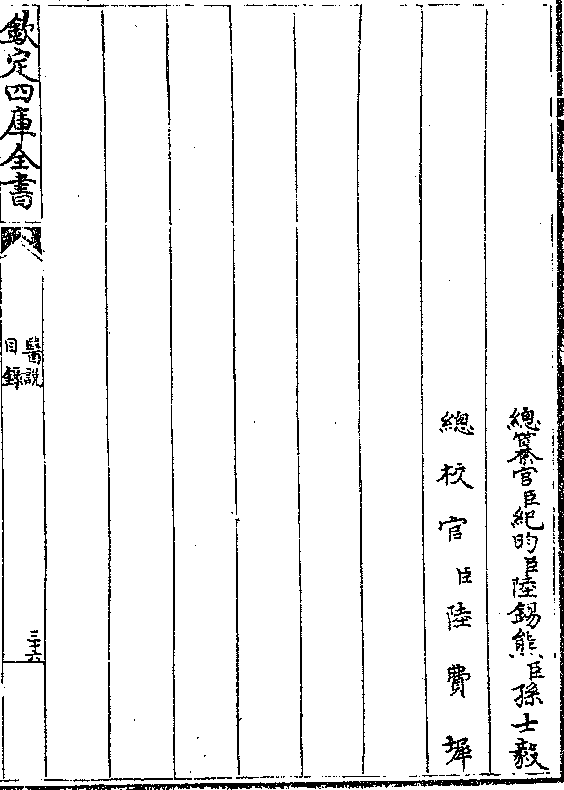 總纂官臣紀昀臣陸錫熊臣孫士毅
總校官臣陸費墀
欽定四庫全書
醫說
目錄
三十六